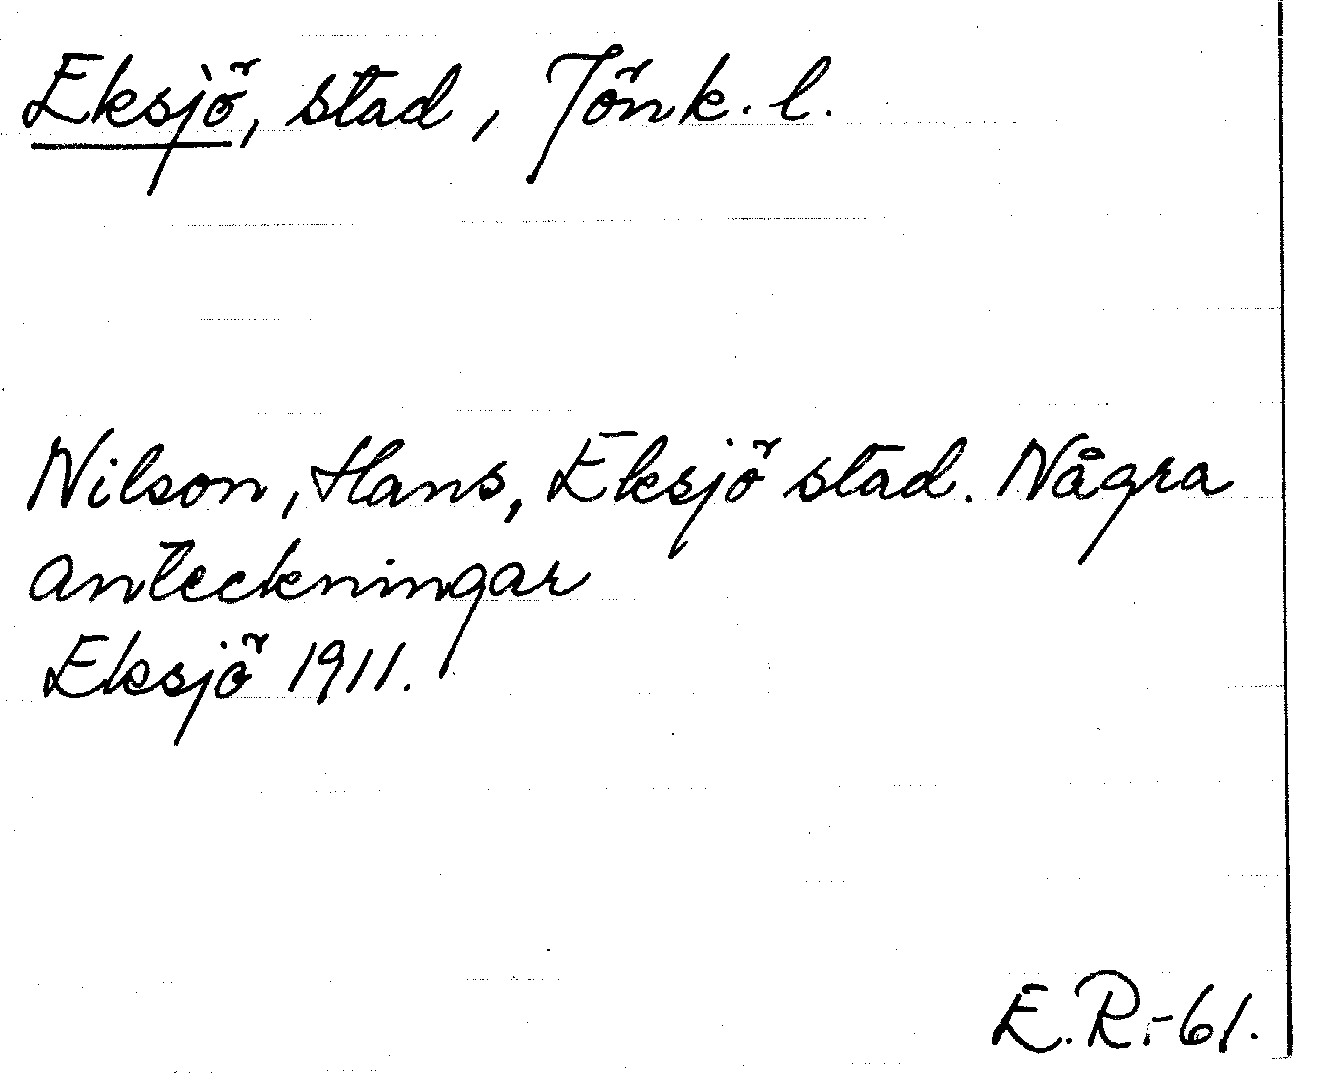 Eksjö, stad, Jönk. l.
Nilson, Hans, Eksjö stad. Några
anteckningar
Eksjö 1911.
E.R.-61.